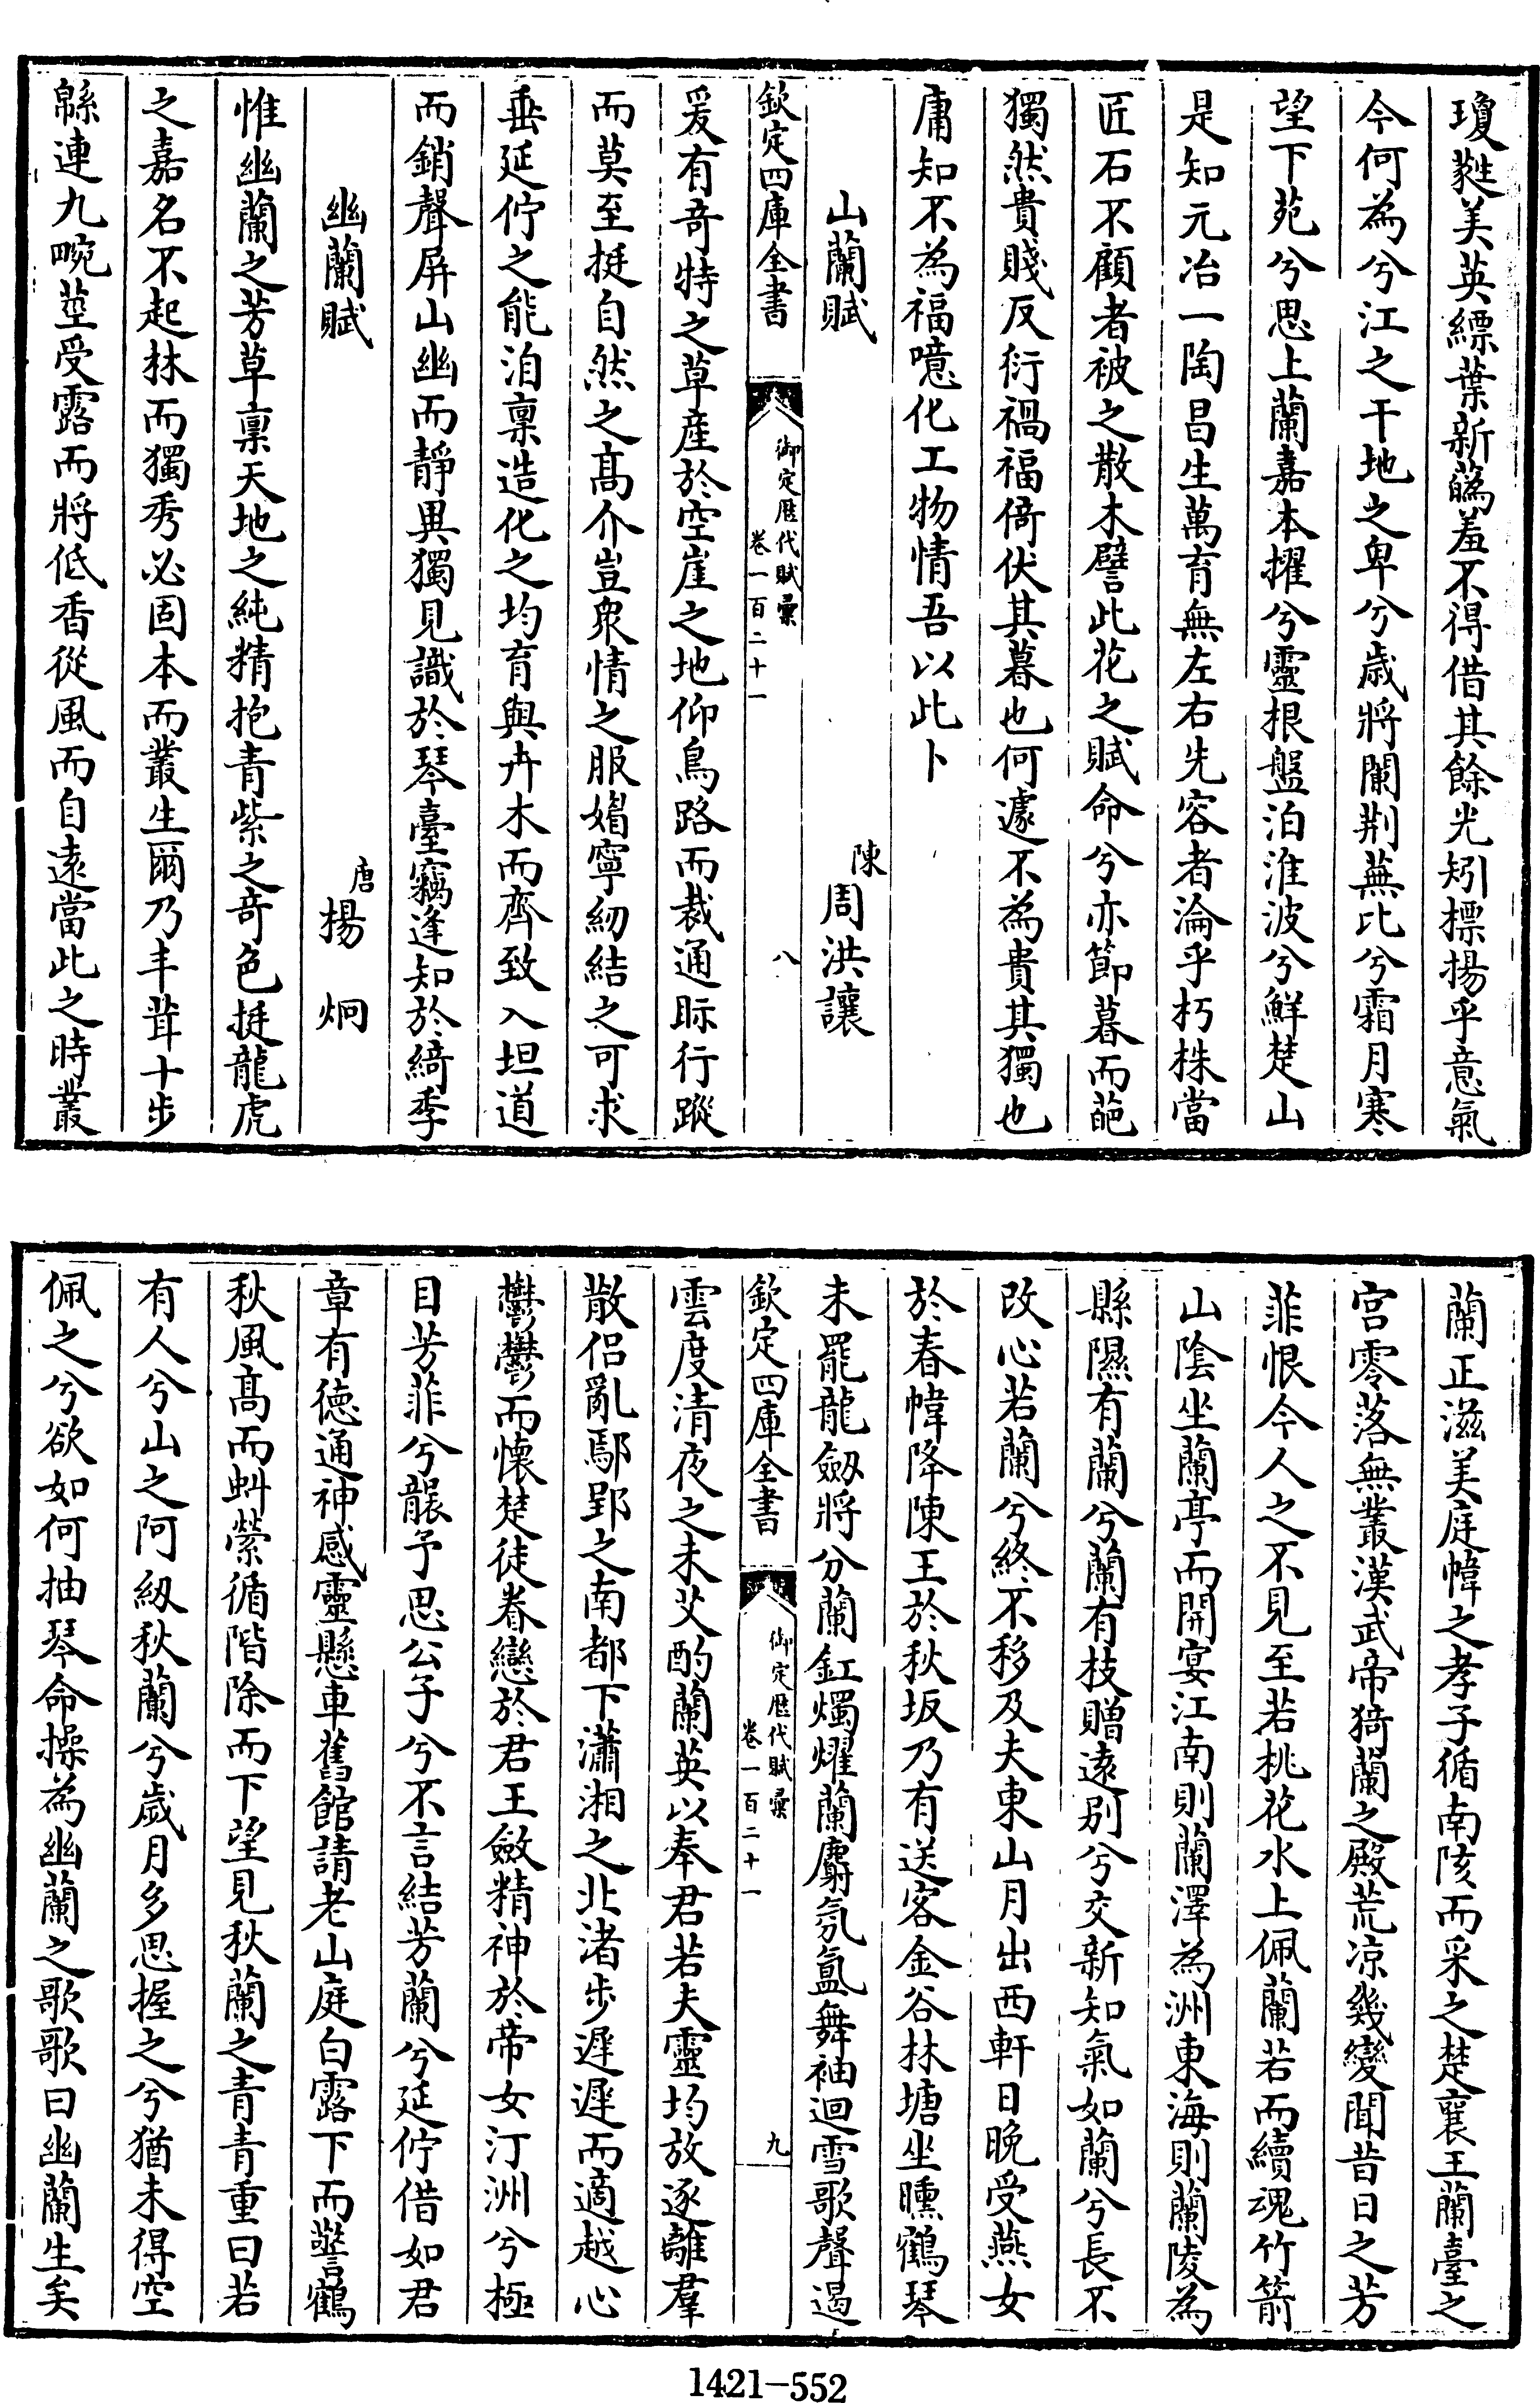 瓊蕤美英縹葉新蘤羞不得借其餘光矧標揚乎意氣
今何為兮江之干地之卑兮歲將闌荆蕪比兮霜月寒
望下苑兮思上蘭嘉本擢兮靈根盤泊淮波兮鮮楚山
是知元冶一陶昌生萬育無左右先容者淪乎朽株當
匠石不顧者被之散木譬此花之賦命兮亦節暮而葩
獨然貴賤反衍禍福倚伏其暮也何遽不為貴其獨也
庸知不為福噫化工物情吾以此卜
山蘭賦 陳周洪讓
欽定四庫全書 御定歷代賦彙 卷一百二十一 八
爰有奇特之草産於空崖之地仰鳥路而裁通眎行蹤
而莫至挺自然之高介豈衆情之服媚寧紉結之可求
垂延佇之能洎禀造化之均育與卉木而齊致入坦道
而銷聲屏山幽而靜異獨見識於琴臺竊逢知於綺季
幽蘭賦 唐楊炯
惟幽蘭之芳草禀天地之純精抱青紫之奇色挺龍虎
之嘉名不起林而獨秀必固本而叢生爾乃丰茸十步
緜連九畹莖受露而將低香從風而自遠當此之時叢
蘭正滋美庭幃之孝子循南陔而采之楚襄王蘭臺之
宫零落無叢漢武帝猗蘭之殿荒凉幾變聞昔日之芳
菲恨今人之不見至若桃花水上佩蘭若而續魂竹箭
山隂坐蘭亭而開宴江南則蘭澤為洲東海則蘭陵為
縣隰有蘭兮蘭有枝贈遠别兮交新知氣如蘭兮長不
改心若蘭兮終不移及夫東山月出西軒日晚受燕女
於春幃降陳王於秋坂乃有送客金谷林塘坐曛鶴琴
未罷龍劔將分蘭釭燭燿蘭麝氛氲舞袖迴雪歌聲遏
欽定四庫全書 御定歷代賦彙 卷一百二十一 九
雲度清夜之未艾酌蘭英以奉君若夫靈均放逐離羣
散侣亂鄢郢之南都下瀟湘之北渚步遲遲而適越心
鬱鬱而懐楚徒眷戀於君王斂精神於帝女汀洲兮極
目芳菲兮襲予思公子兮不言結芳蘭兮延佇借如君
章有德通神感靈懸車舊館請老山庭白露下而警鶴
秋風高而蚪縈循階除而下望見秋蘭之青青重曰若
有人兮山之阿紉秋蘭兮歲月多思握之兮猶未得空
佩之兮欲如何抽琴命操為幽蘭之歌歌曰幽蘭生矣
1421-552